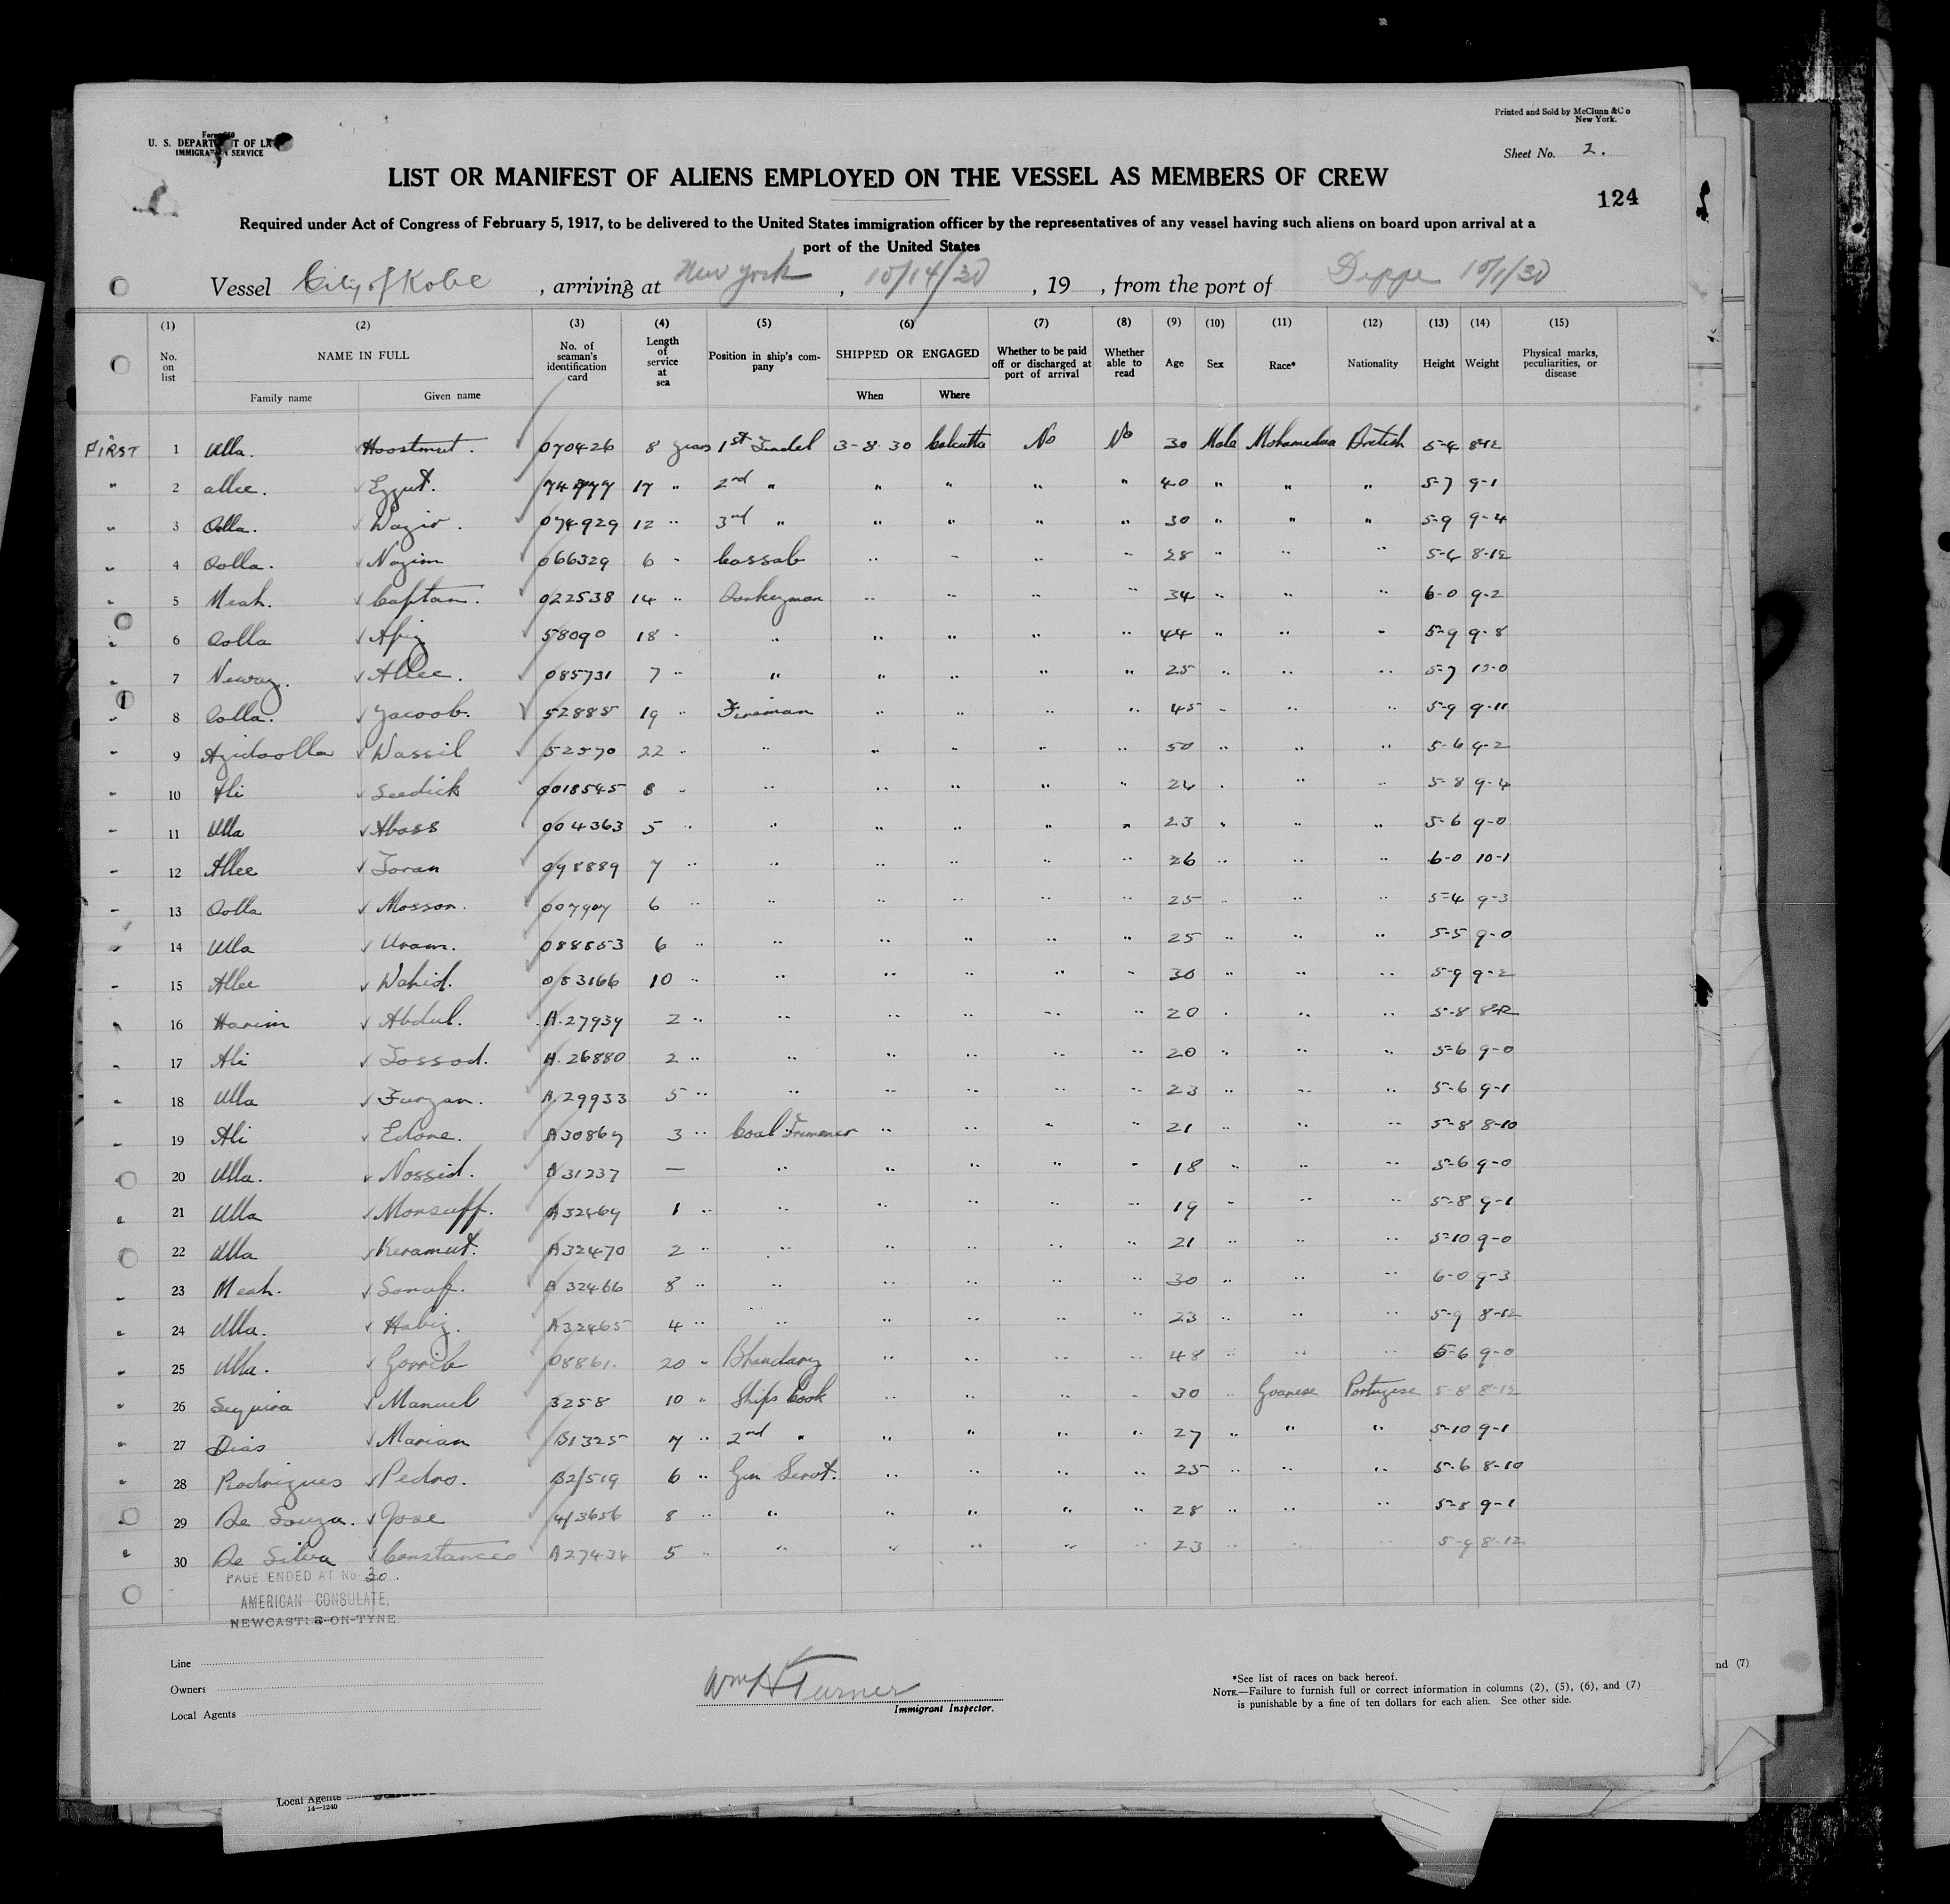 Printed and Sold by McClunn & Co
New York.
Form 680
U. S. DEPARTMENT OF LA
IMMIGRATION SERVICE
Sheet No. 2.
LIST OR MANIFEST OF ALIENS EMPLOYED ON THE VESSEL AS MEMBERS OF CREW
124
Required under Act of Congress of February 5, 1917, to be delivered to the United States immigration officer by the representatives of any vessel having such aliens on board upon arrival at a
port of the United States
Vessel City of Kobe , arriving at New York , 10/14/30 , 19 , from the port of Dieppe 10/1/30
(1) (2) (3) (4) (5) (6) (7) (8) (9) (10) (11) (12) (13) (14) (15)
No. on list NAME IN FULL No. of seaman's identification card Length of service at sea Position in ship's company SHIPPED OR ENGAGED Whether to be paid off or discharged at port of arrival Whether able to read Age Sex Race* Nationality Height Weight Physical marks, peculiarities, or disease
Family name Given name When Where
FIRST 1 Ulla. Hoostmut. 070426 8 years 1st Tindal 3-8-30 Calcutta No No 30 Male Mohamedan British 5-4 8-12
" 2 allee. Ezzut. 74777 17 " 2nd " " " " " 40 " " " 5-7 9-1
" 3 Oolla. Wazir. 074929 12 " 3rd " " " " " 30 " " " 5-9 9-4
" 4 Oolla. Nazim 066329 6 " Cassab " " " " 28 " " " 5-4 8-12
" 5 Meah. Captan. 022538 14 " Donkeyman " " " " 34 " " " 6-0 9-2
" 6 Oolla Afiz 58090 18 " " " " " " 44 " " " 5-9 9-8
" 7 Newaz. Allee. 085731 7 " " " " " " 25 " " " 5-7 10-0
" 8 Oolla. Yacoob. 52885 19 " Fireman " " " " 45 " " " 5-9 9-11
" 9 Azidoolla Wassil 52570 22 " " " " " " 50 " " " 5-6 9-2
" 10 Ali Seedick 0018545 8 " " " " " " 24 " " " 5-8 9-4
" 11 Ulla Aboss 004363 5 " " " " " " 23 " " " 5-6 9-0
" 12 Allee Toran 098889 7 " " " " " " 26 " " " 6-0 10-1
" 13 Oolla Mosson. 007907 6 " " " " " " 25 " " " 5-4 9-3
" 14 Ulla Uram. 088553 6 " " " " " " 25 " " " 5-5 9-0
" 15 Allee Wahid. 083166 10 " " " " " " 30 " " " 5-9 9-2
" 16 Harim Abdul. A.27939 2 " " " " " " 20 " " " 5-8 8-12
" 17 Ali Tossod. A.26880 2 " " " " " " 20 " " " 5-6 9-0
" 18 Ulla Furzan. A.29933 5 " " " " " " 23 " " " 5-6 9-1
" 19 Ali Edone. A30867 3 " Coal Trimmer " " " " 21 " " " 5-8 8-10
" 20 Ulla. Nossid. A31237 — " " " " " 18 " " " 5-6 9-0
" 21 Ulla Monsuff. A32469 1 " " " " " " 19 " " " 5-8 9-1
" 22 Ulla Keramut. A32470 2 " " " " " " 21 " " " 5-10 9-0
" 23 Meah. Sonaf. A32466 8 " " " " " " 30 " " " 6-0 9-3
" 24 Ulla. Habiz. A32465 4 " " " " " " 23 " " " 5-9 8-12
" 25 Ulla. Gorrib 08861. 20 " Bhandary " " " " 48 " " " 5-6 9-0
" 26 Sequira Manuel 3258 10 " Ships Cook " " " " 30 " Goanese Portugese 5-8 8-12
" 27 Dias Marian B1325 7 " 2nd " " " " " 27 " " " 5-10 9-1
" 28 Rodrigues Pedro. B2/519 6 " Gen Servt. " " " " 25 " " " 5-6 8-10
" 29 De Souza. Jose 4/3656 8 " " " " " " 28 " " " 5-8 9-1
" 30 De Silva Constancio A27434 5 " " " " " " 23 " " " 5-9 8-12
PAGE ENDED AT No. 30.
AMERICAN CONSULATE,
NEWCASTLE-ON-TYNE.
Line
Owners
Local Agents
Wm H Turner
Immigrant Inspector.
*See list of races on back hereof.
NOTE.—Failure to furnish full or correct information in columns (2), (5), (6), and (7)
is punishable by a fine of ten dollars for each alien. See other side.
nd (7)
Local Agents
14—1240